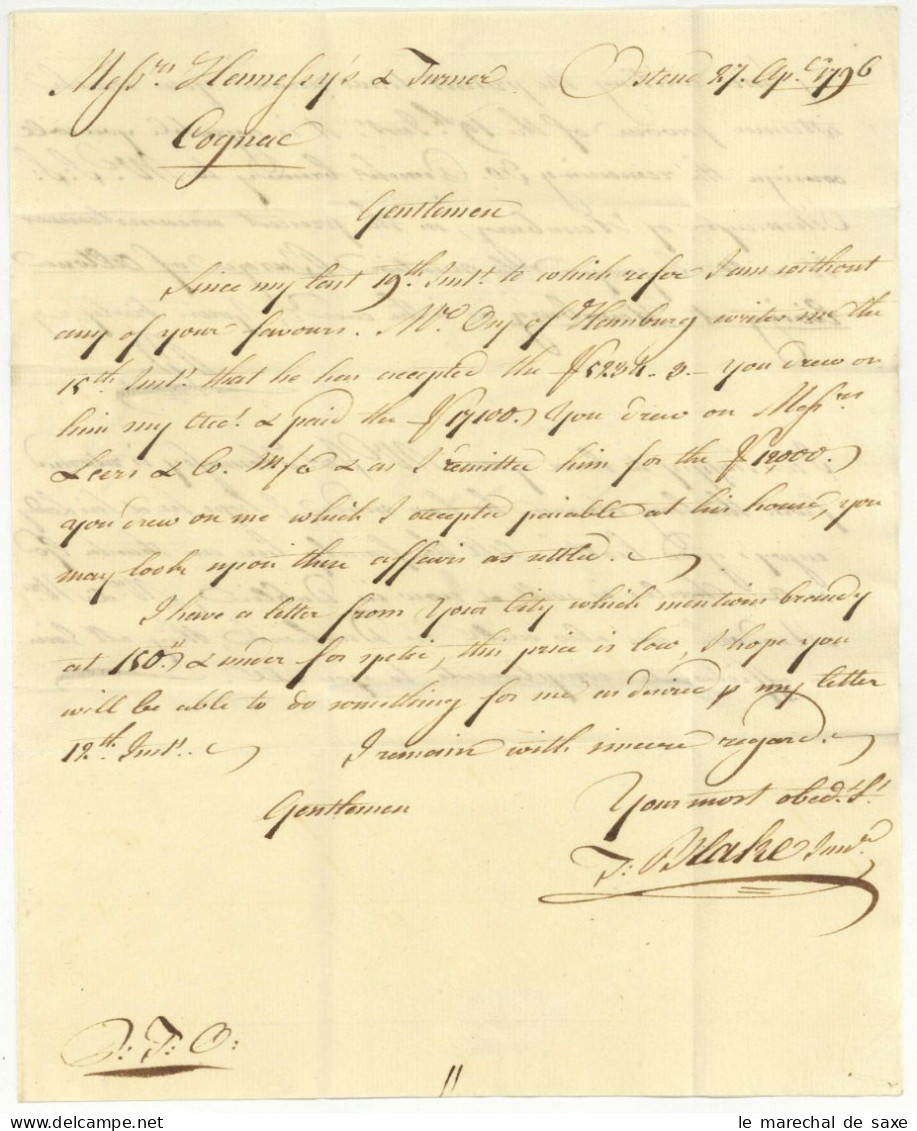 Mess.rs Hennessy's & Turner Ostend 27. Ap.l 1796
Cognac
Gentlemen
Since my last 19th. Inst.t to which refer I am without
any of your favours. Mr. Ony of Hamburg writes me the
15th Inst.t that he has accepted the ƒ5234.3.- you drew on
him my Acc.t & paid the ƒ17100.) You drew on Mess.rs
Leers & Co. & as I remitted him for the ƒ12,000.)
you drew on me which I accepted paiable at his house, you
may look upon these affairs as settled.
I have a letter from Your City which mentions brandy
at 150.tt) & under for specie, this price is low, I hope you
will be able to do something for me as desired p my letter
12th. Inst.t I remain with sincere regard.
Gentlemen Your most obed.t S.t
T: Blake Jun.r
P: T: O:
le marechal de saxe